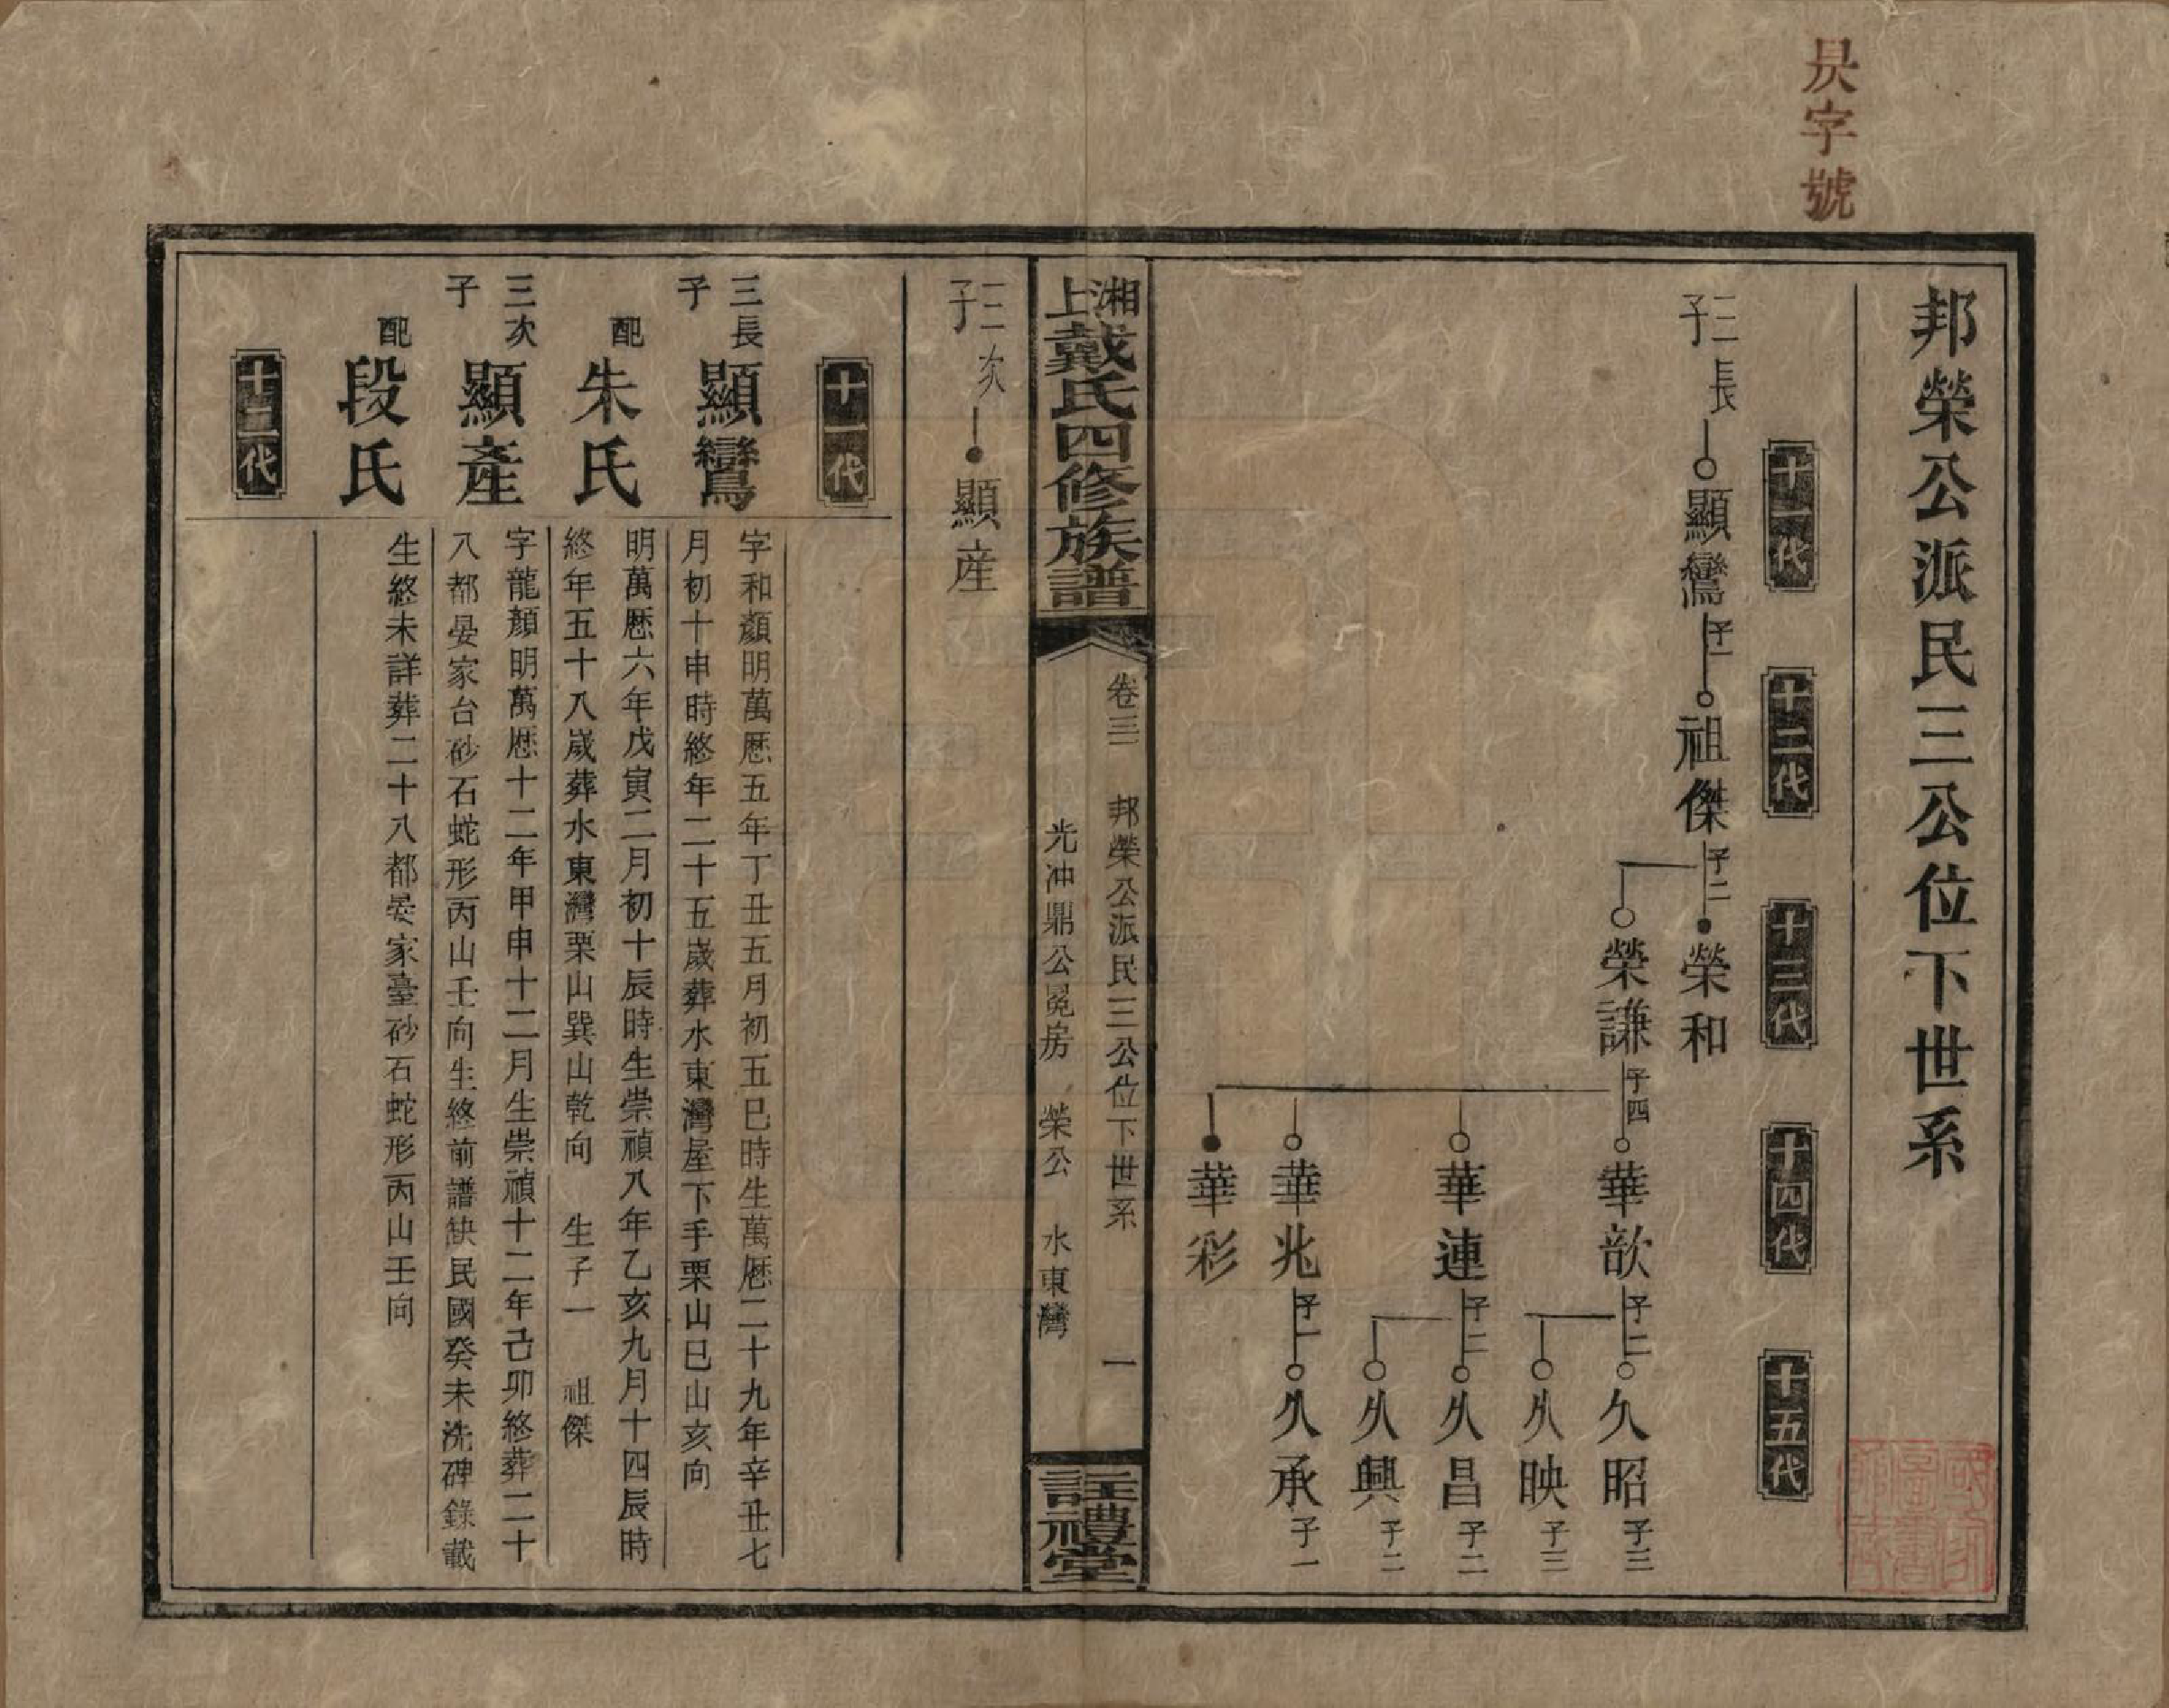 昃字號
邦榮公派民三公位下世系
十一代
十二代
十三代
十四代
十五代
三子長 顯鸞 子一 祖傑 子二 榮和
榮謙 子四 華歆 子二 久昭 子三
久映 子三
華連 子二 久昌 子二
久興 子二
華兆 子一 久承 子一
華彩
湘上戴氏四修族譜
卷三 邦榮公派民三公位下世系 一
光冲鼎公冕房 榮公 水東灣
註禮堂
三子次 顯産
十一代
三子長 顯鸞
字和顏明萬歷五年丁丑五月初五巳時生萬歷二十九年辛丑七
月初十申時終年二十五歲葬水東灣屋下手栗山巳山亥向
配 朱氏
明萬歷六年戊寅二月初十辰時生崇禎八年乙亥九月十四辰時
終年五十八歲葬水東灣栗山巽山乾向 生子一 祖傑
三子次 顯產
字龍顏明萬歷十二年甲申十二月生崇禎十二年己卯終葬二十
八都晏家台砂石蛇形丙山壬向生終前譜缺民國癸未洗碑錄載
配 段氏
生終未詳葬二十八都晏家臺砂石蛇形丙山壬向
十二代